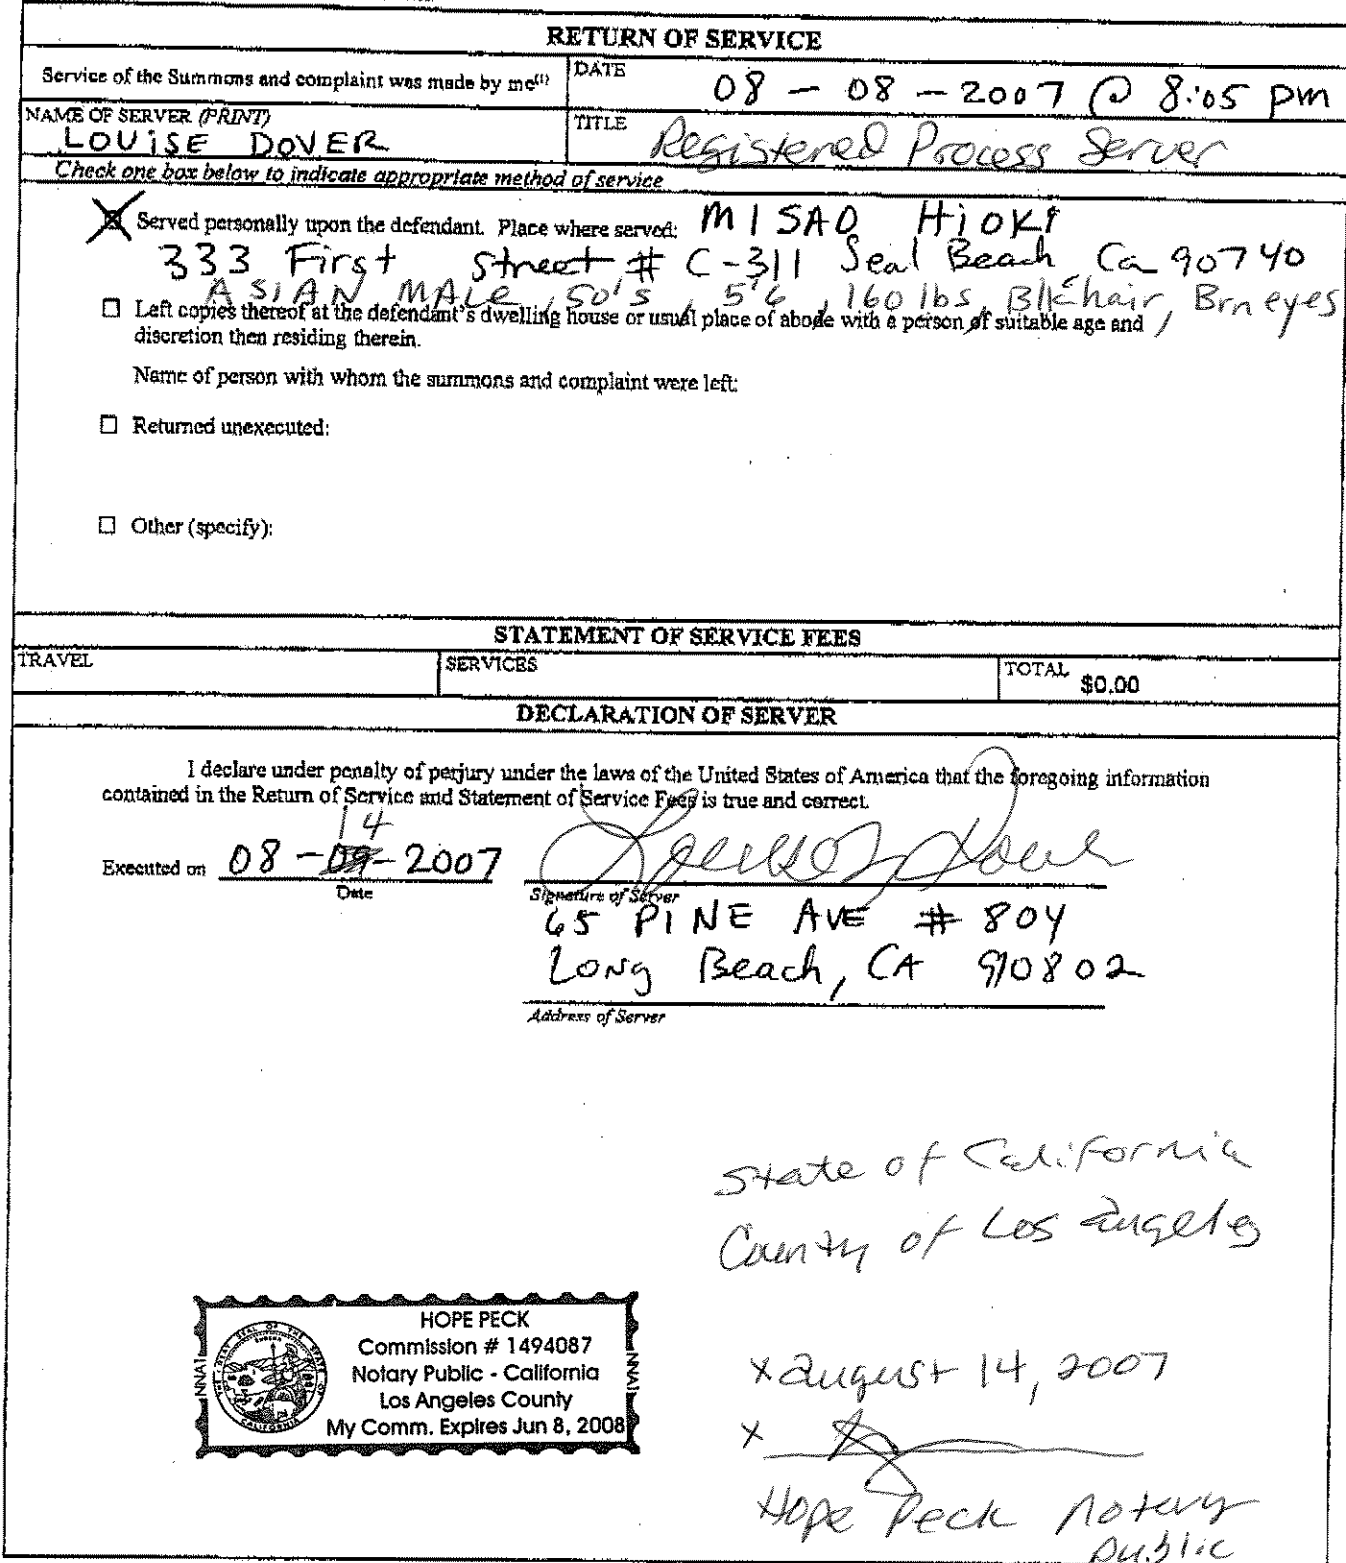 RETURN OF SERVICE
Service of the Summons and complaint was made by me(1)
DATE
08 - 08 - 2007 @ 8:05 pm
NAME OF SERVER (PRINT)
LOUISE DOVER
TITLE
Registered Process Server
Check one box below to indicate appropriate method of service
Served personally upon the defendant. Place where served: MISAO HIOKI
333 First Street # C-311 Seal Beach, Ca 90740
ASIAN MALE, 50's, 5'6, 160 lbs, Blk hair, Brn eyes
☐ Left copies thereof at the defendant's dwelling house or usual place of abode with a person of suitable age and
discretion then residing therein.
Name of person with whom the summons and complaint were left:
☐ Returned unexecuted:
☐ Other (specify):
STATEMENT OF SERVICE FEES
TRAVEL
SERVICES
TOTAL $0.00
DECLARATION OF SERVER
I declare under penalty of perjury under the laws of the United States of America that the foregoing information
contained in the Return of Service and Statement of Service Fees is true and correct.
14
Executed on 08 - 09 - 2007
Louise Dover
Date
Signature of Server
65 PINE AVE # 804
Long Beach, CA 90802
Address of Server
State of California
County of Los Angeles
HOPE PECK
Commission # 1494087
Notary Public - California
Los Angeles County
My Comm. Expires Jun 8, 2008
NNA1
NNA1
x August 14, 2007
x
Hope Peck Notary
Public